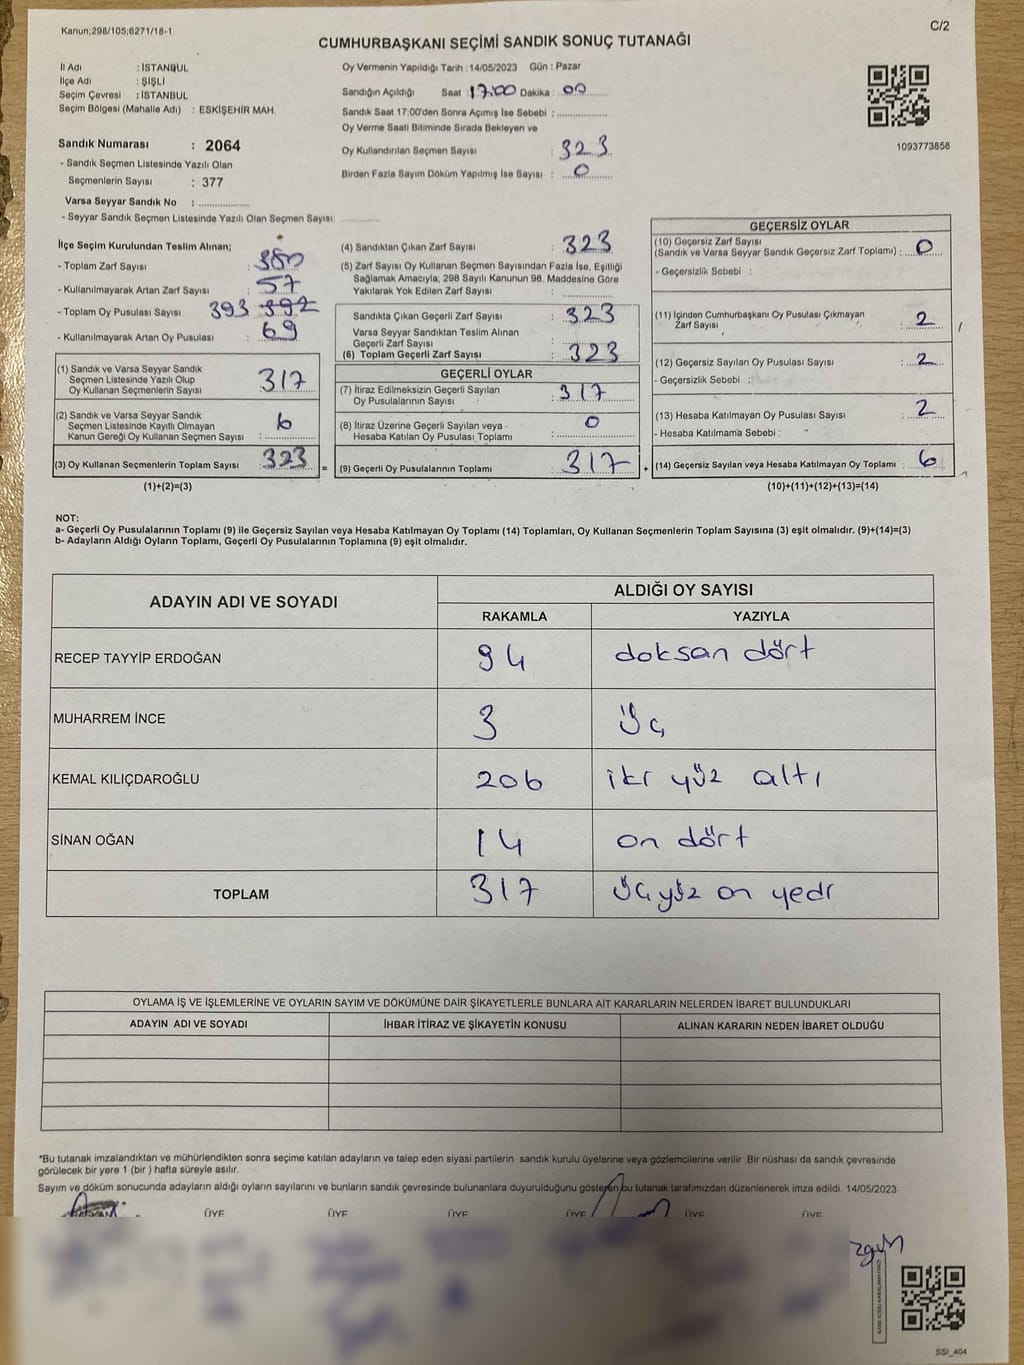 Kanun;298/105;6271/18-1
C/2
CUMHURBAŞKANI SEÇİMİ SANDIK SONUÇ TUTANAĞI
İl Adı : İSTANBUL
İlçe Adı : ŞİŞLİ
Seçim Çevresi : İSTANBUL
Seçim Bölgesi (Mahalle Adı) : ESKİŞEHİR MAH.
Sandık Numarası : 2064
- Sandık Seçmen Listesinde Yazılı Olan
Seçmenlerin Sayısı : 377
Varsa Seyyar Sandık No :
- Seyyar Sandık Seçmen Listesinde Yazılı Olan Seçmen Sayısı:
Oy Vermenin Yapıldığı Tarih : 14/05/2023 Gün : Pazar
Sandığın Açıldığı Saat : 17:00 Dakika : 00
Sandık Saat 17:00'den Sonra Açımış İse Sebebi :
Oy Verme Saati Bitiminde Sırada Bekleyen ve
Oy Kullandırılan Seçmen Sayısı : 323
Birden Fazla Sayım Döküm Yapılmış İse Sayısı : 0
1093773858
İlçe Seçim Kurulundan Teslim Alınan;
- Toplam Zarf Sayısı : 380
- Kullanılmayarak Artan Zarf Sayısı : 57
- Toplam Oy Pusulası Sayısı 393 392
- Kullanılmayarak Artan Oy Pusulası : 69
(1) Sandık ve Varsa Seyyar Sandık
Seçmen Listesinde Yazılı Olup
Oy Kullanan Seçmenlerin Sayısı 317
(2) Sandık ve Varsa Seyyar Sandık
Seçmen Listesinde Kayıtlı Olmayan
Kanun Gereği Oy Kullanan Seçmen Sayısı : 6
(3) Oy Kullanan Seçmenlerin Toplam Sayısı 323 =
(1)+(2)=(3)
(4) Sandıktan Çıkan Zarf Sayısı : 323
(5) Zarf Sayısı Oy Kullanan Seçmen Sayısından Fazla İse, Eşitliği
Sağlamak Amacıyla; 298 Sayılı Kanunun 98. Maddesine Göre
Yakılarak Yok Edilen Zarf Sayısı :
Sandıkta Çıkan Geçerli Zarf Sayısı : 323
Varsa Seyyar Sandıktan Teslim Alınan
Geçerli Zarf Sayısı :
(6) Toplam Geçerli Zarf Sayısı : 323
GEÇERLİ OYLAR
(7) İtiraz Edilmeksizin Geçerli Sayılan
Oy Pusulalarının Sayısı : 317
(8) İtiraz Üzerine Geçerli Sayılan veya
Hesaba Katılan Oy Pusulası Toplamı : 0
(9) Geçerli Oy Pusulalarının Toplamı : 317 +
GEÇERSİZ OYLAR
(10) Geçersiz Zarf Sayısı
(Sandık ve Varsa Seyyar Sandık Geçersiz Zarf Toplamı) : 0
- Geçersizlik Sebebi :
(11) İçinden Cumhurbaşkanı Oy Pusulası Çıkmayan
Zarf Sayısı : 2
(12) Geçersiz Sayılan Oy Pusulası Sayısı : 2
- Geçersizlik Sebebi :
(13) Hesaba Katılmayan Oy Pusulası Sayısı : 2
- Hesaba Katılmama Sebebi :
(14) Geçersiz Sayılan veya Hesaba Katılmayan Oy Toplamı : 6
(10)+(11)+(12)+(13)=(14)
NOT:
a- Geçerli Oy Pusulalarının Toplamı (9) ile Geçersiz Sayılan veya Hesaba Katılmayan Oy Toplamı (14) Toplamları, Oy Kullanan Seçmenlerin Toplam Sayısına (3) eşit olmalıdır. (9)+(14)=(3)
b- Adayların Aldığı Oyların Toplamı, Geçerli Oy Pusulalarının Toplamına (9) eşit olmalıdır.
ADAYIN ADI VE SOYADI
ALDIĞI OY SAYISI
RAKAMLA YAZIYLA
RECEP TAYYİP ERDOĞAN 94 doksan dört
MUHARREM İNCE 3 üç
KEMAL KILIÇDAROĞLU 206 iki yüz altı
SİNAN OĞAN 14 on dört
TOPLAM 317 üçyüz on yedi
OYLAMA İŞ VE İŞLEMLERİNE VE OYLARIN SAYIM VE DÖKÜMÜNE DAİR ŞİKAYETLERLE BUNLARA AİT KARARLARIN NELERDEN İBARET BULUNDUKLARI
ADAYIN ADI VE SOYADI İHBAR İTİRAZ VE ŞİKAYETİN KONUSU ALINAN KARARIN NEDEN İBARET OLDUĞU
*Bu tutanak imzalandıktan ve mühürlendikten sonra seçime katılan adayların ve talep eden siyasi partilerin sandık kurulu üyelerine veya gözlemcilerine verilir. Bir nüshası da sandık çevresinde
görülecek bir yere 1 (bir ) hafta süreyle asılır.
Sayım ve döküm sonucunda adayların aldığı oyların sayılarını ve bunların sandık çevresinde bulunanlara duyurulduğunu gösteren bu tutanak tarafımızdan düzenlenerek imza edildi. 14/05/2023
BAŞKAN ÜYE ÜYE ÜYE ÜYE ÜYE ÜYE
SSI_404